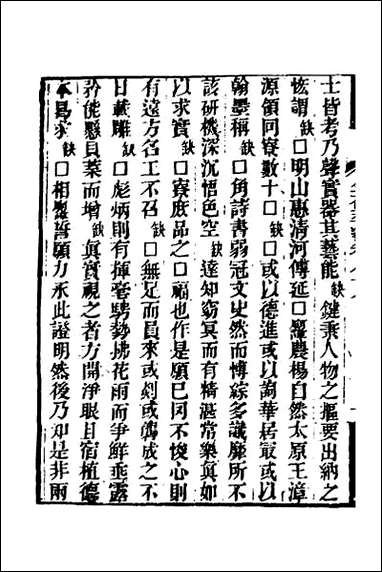 士皆考乃聲實器其藝能缺鍵乘人物之摳要出納之
恢謂缺□明山惠清河傅延□弘農楊自然太原王漳
源領同寮數十□□□或以德進或以詢華居最或以
翰墨稱缺□角詩書弱冠文史然而博綜多識靡所不
該研機深沉悟色空缺達知窈冥而有精湛常樂真如
以求實缺□寮庶品之□福也作是願已同不悛心則
有遠方名工不召缺□無足而員來或剡或礱成之不
日載雕缺□彪炳則有揮奮騁勢拂花雨而爭鮮垂露
矜能懸貝葉而增缺真實視之者方開淨眼且宿植德
本曷求缺□相與誓願力永此證明然後乃知是非兩